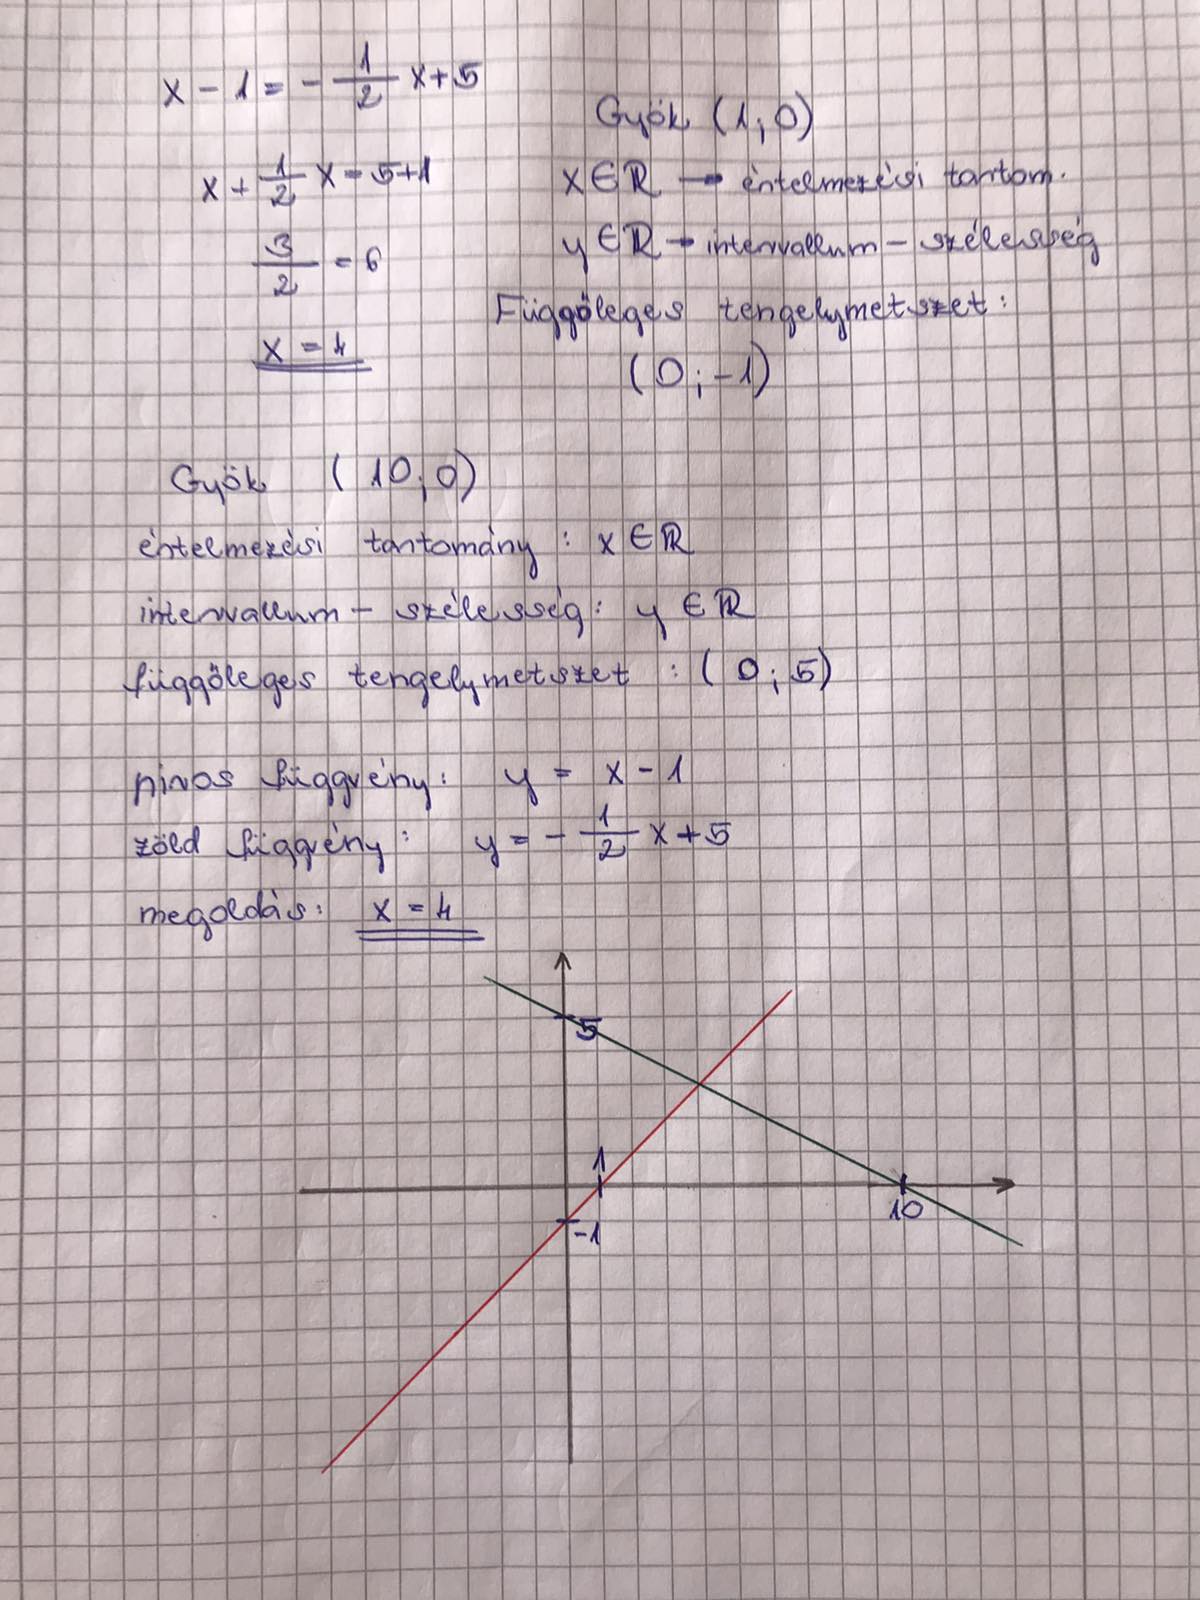 x - 1 = - 1/2 x + 5
x + 1/2 x = 5+1
3/2 = 6
x = 4
Gyök (1; 0)
x ∈ ℝ → értelmezési tartom.
y ∈ ℝ → intervallum - szélesség
Függőleges tengelymetszet:
(0; -1)
Gyök (10; 0)
értelmezési tartomány : x ∈ ℝ
intervallum - szélesség: y ∈ ℝ
függőleges tengelymetszet : (0; 5)
piros függvény: y = x - 1
zöld függvény: y = - 1/2 x + 5
megoldás: x = 4
5
1
10
-1